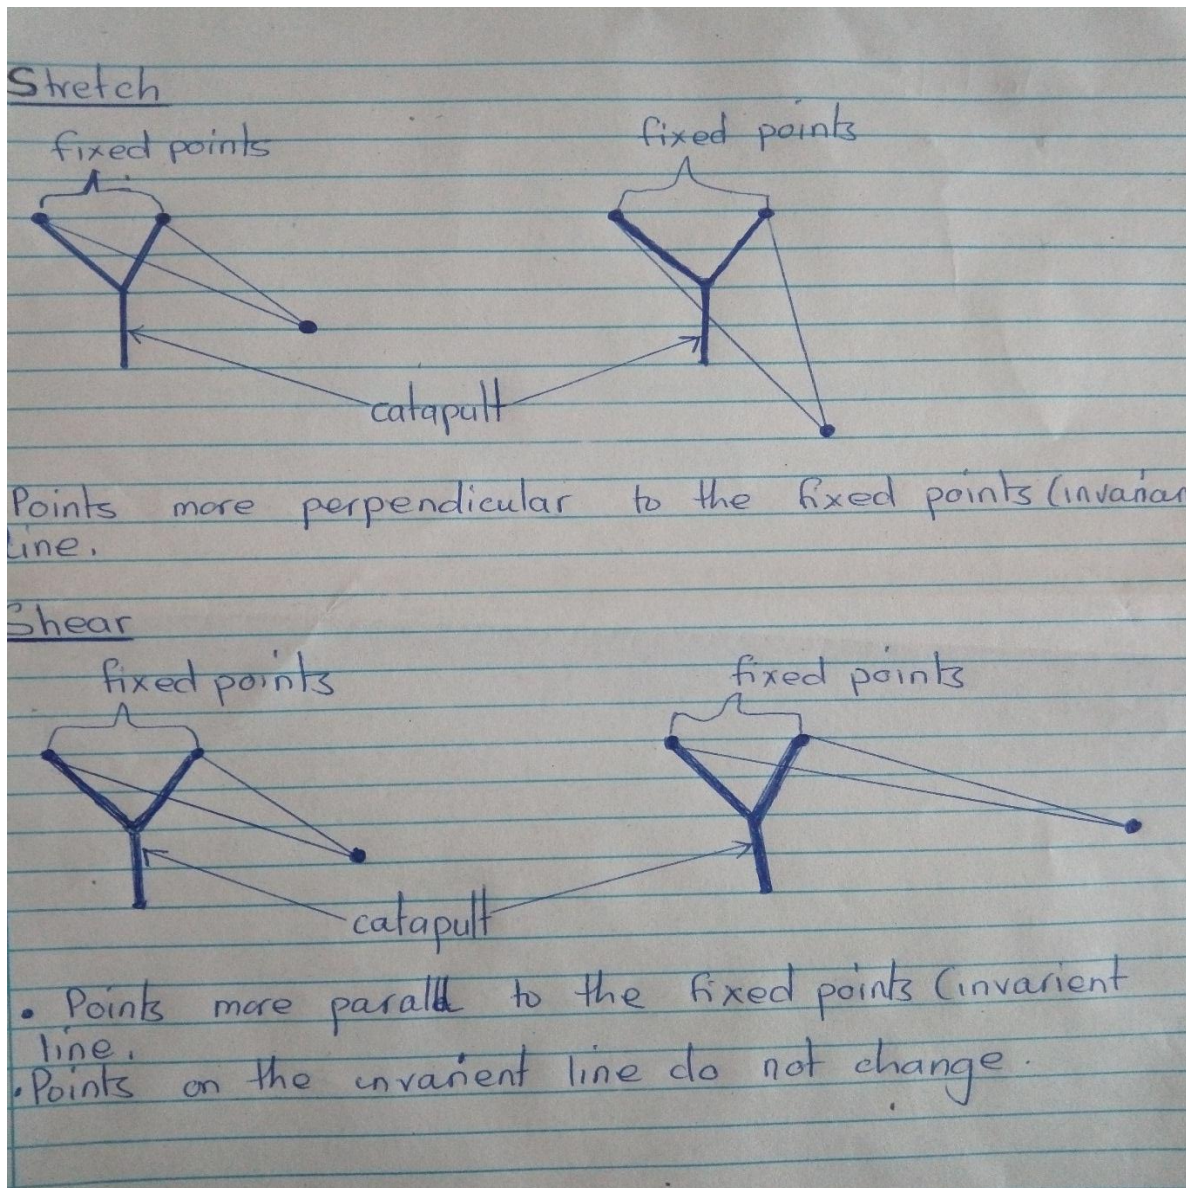 Stretch
fixed points
fixed points
catapult
Points more perpendicular to the fixed points (invarian
line.
Shear
fixed points
fixed points
catapult
• Points more parallel to the fixed points (invarient
line.
• Points on the invarient line do not change.